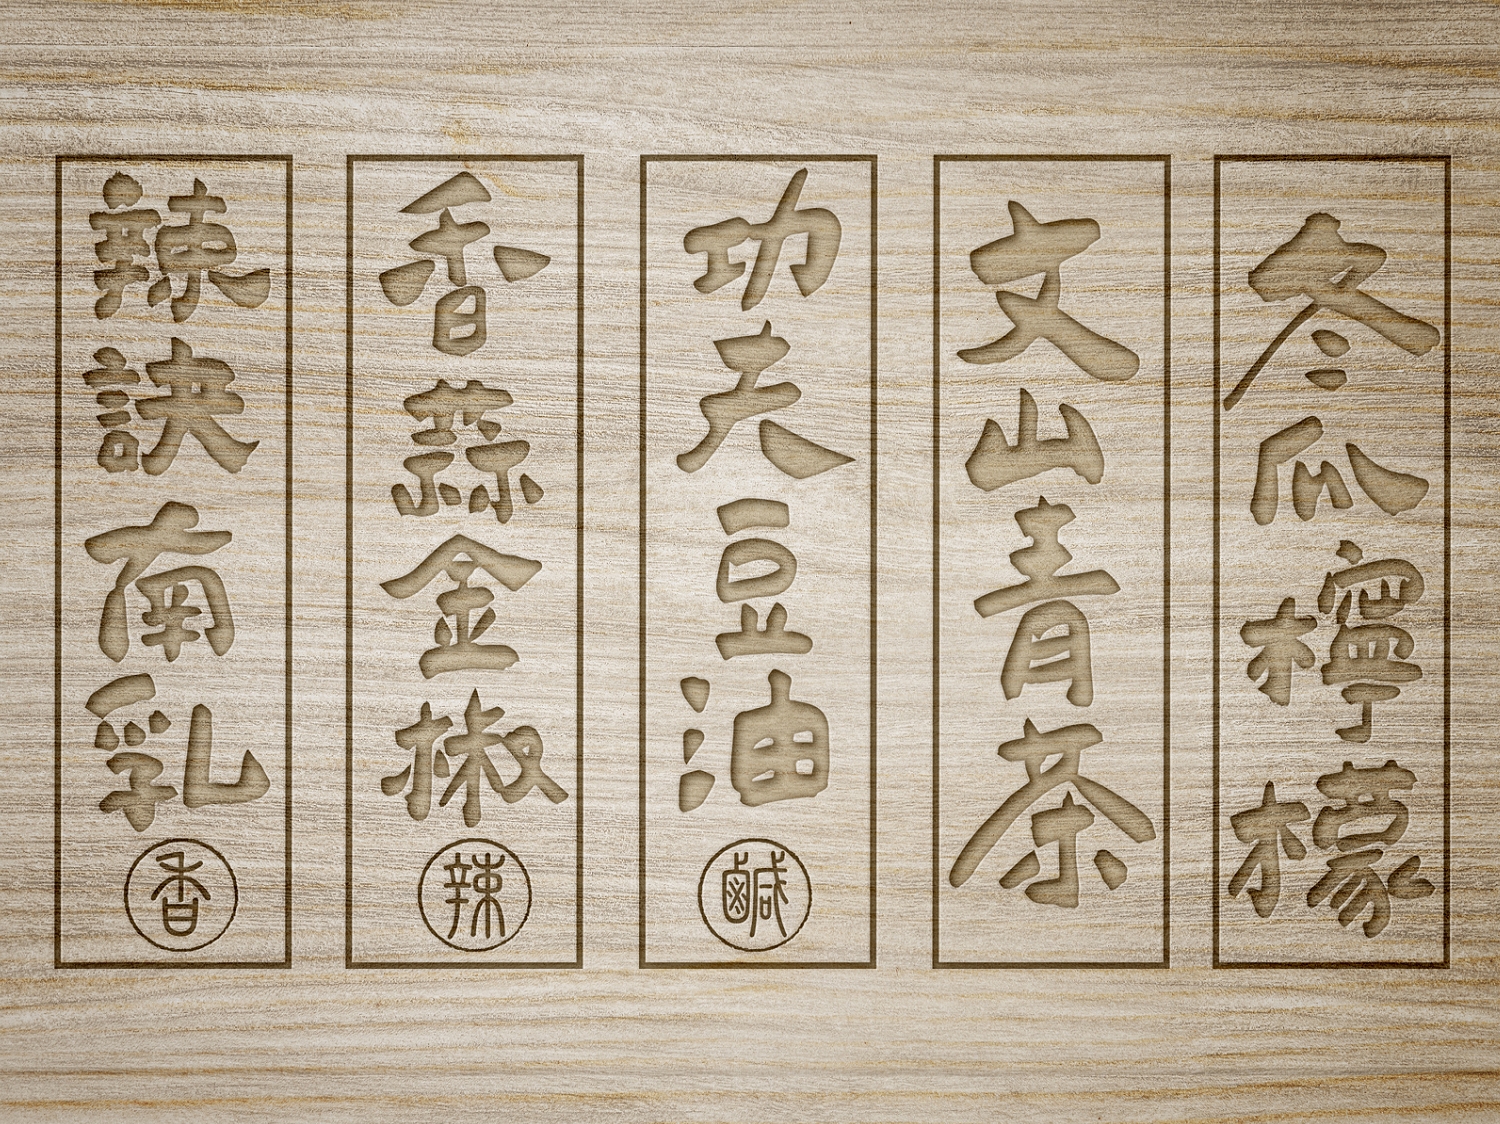 冬瓜檸檬
文山青茶
功夫豆油
鹹
香蒜金椒
辣
辣訣南乳
香